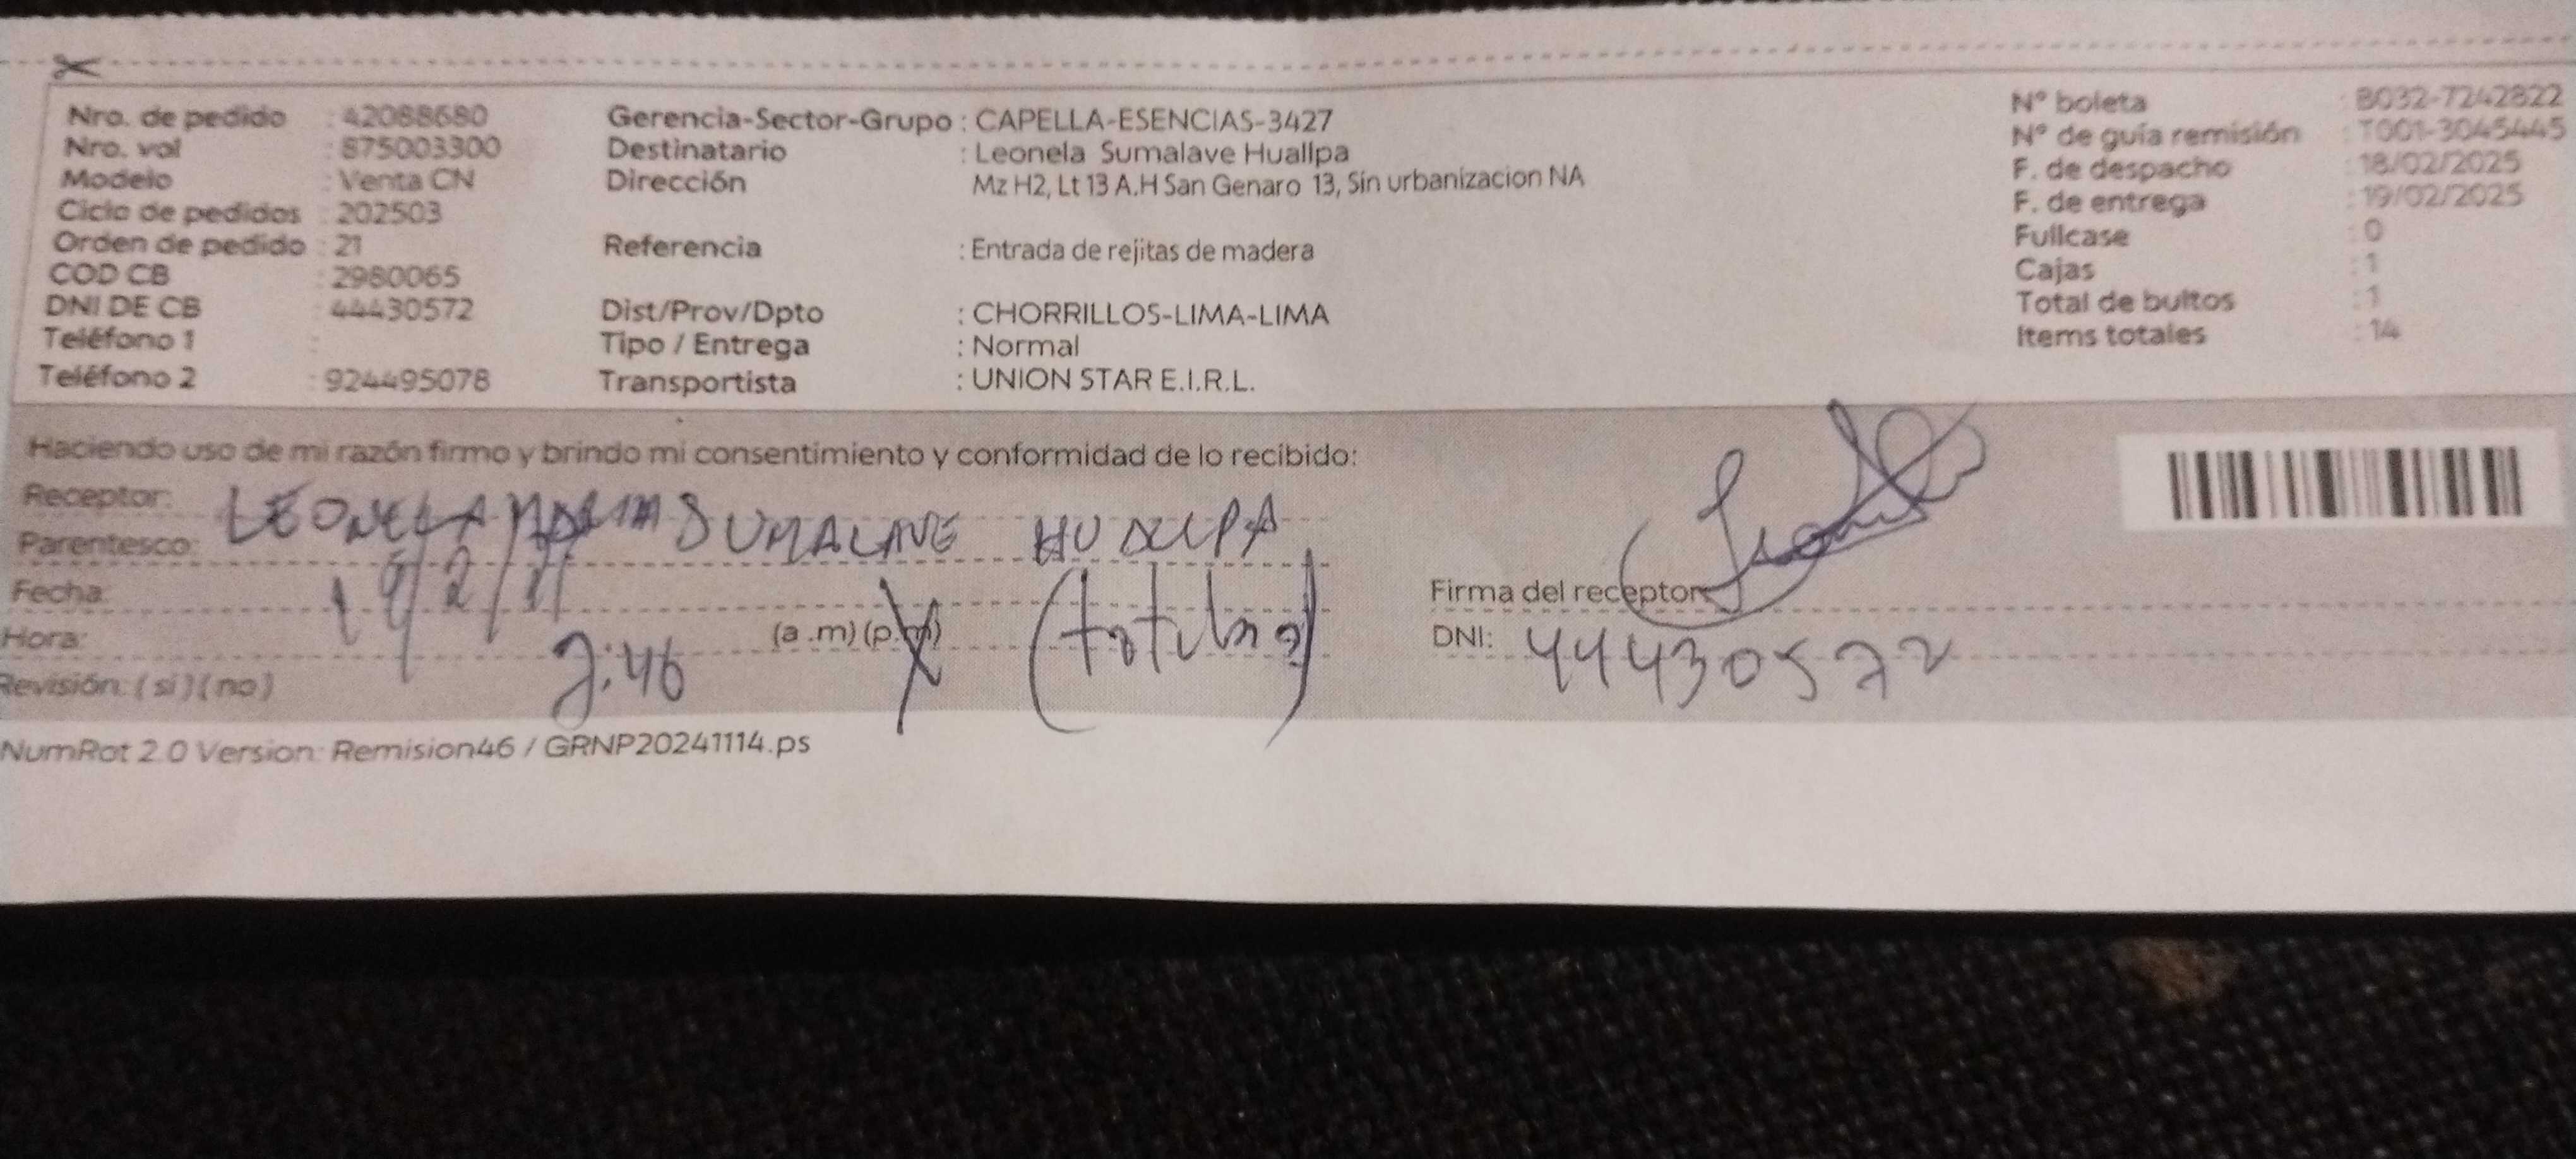 Nro. de pedido : 42088680
Nro. vol : 875003300
Modelo : Venta CN
Ciclo de pedidos : 202503
Orden de pedido : 21
COD CB : 2980065
DNI DE CB : 44430572
Teléfono 1 :
Teléfono 2 : 924495078
Gerencia-Sector-Grupo : CAPELLA-ESENCIAS-3427
Destinatario : Leonela Sumalave Huallpa
Dirección Mz H2, Lt 13 A.H San Genaro 13, Sin urbanizacion NA
Referencia : Entrada de rejitas de madera
Dist/Prov/Dpto : CHORRILLOS-LIMA-LIMA
Tipo / Entrega : Normal
Transportista : UNION STAR E.I.R.L.
N° boleta : B032-7242822
N° de guía remisión : T001-3045445
F. de despacho : 18/02/2025
F. de entrega : 19/02/2025
Fullcase : 0
Cajas : 1
Total de bultos : 1
Items totales : 14
Haciendo uso de mi razón firmo y brindo mi consentimiento y conformidad de lo recibido:
Receptor: LEONELA SUMALAVE HUALLPA
Parentesco:
Fecha: 19/2/
Hora: 2:46 (a .m) (p.m)
Revisión: ( si ) ( no )
Firma del receptor
DNI: 44430572
NumRot 2.0 Version: Remision46 / GRNP20241114.ps